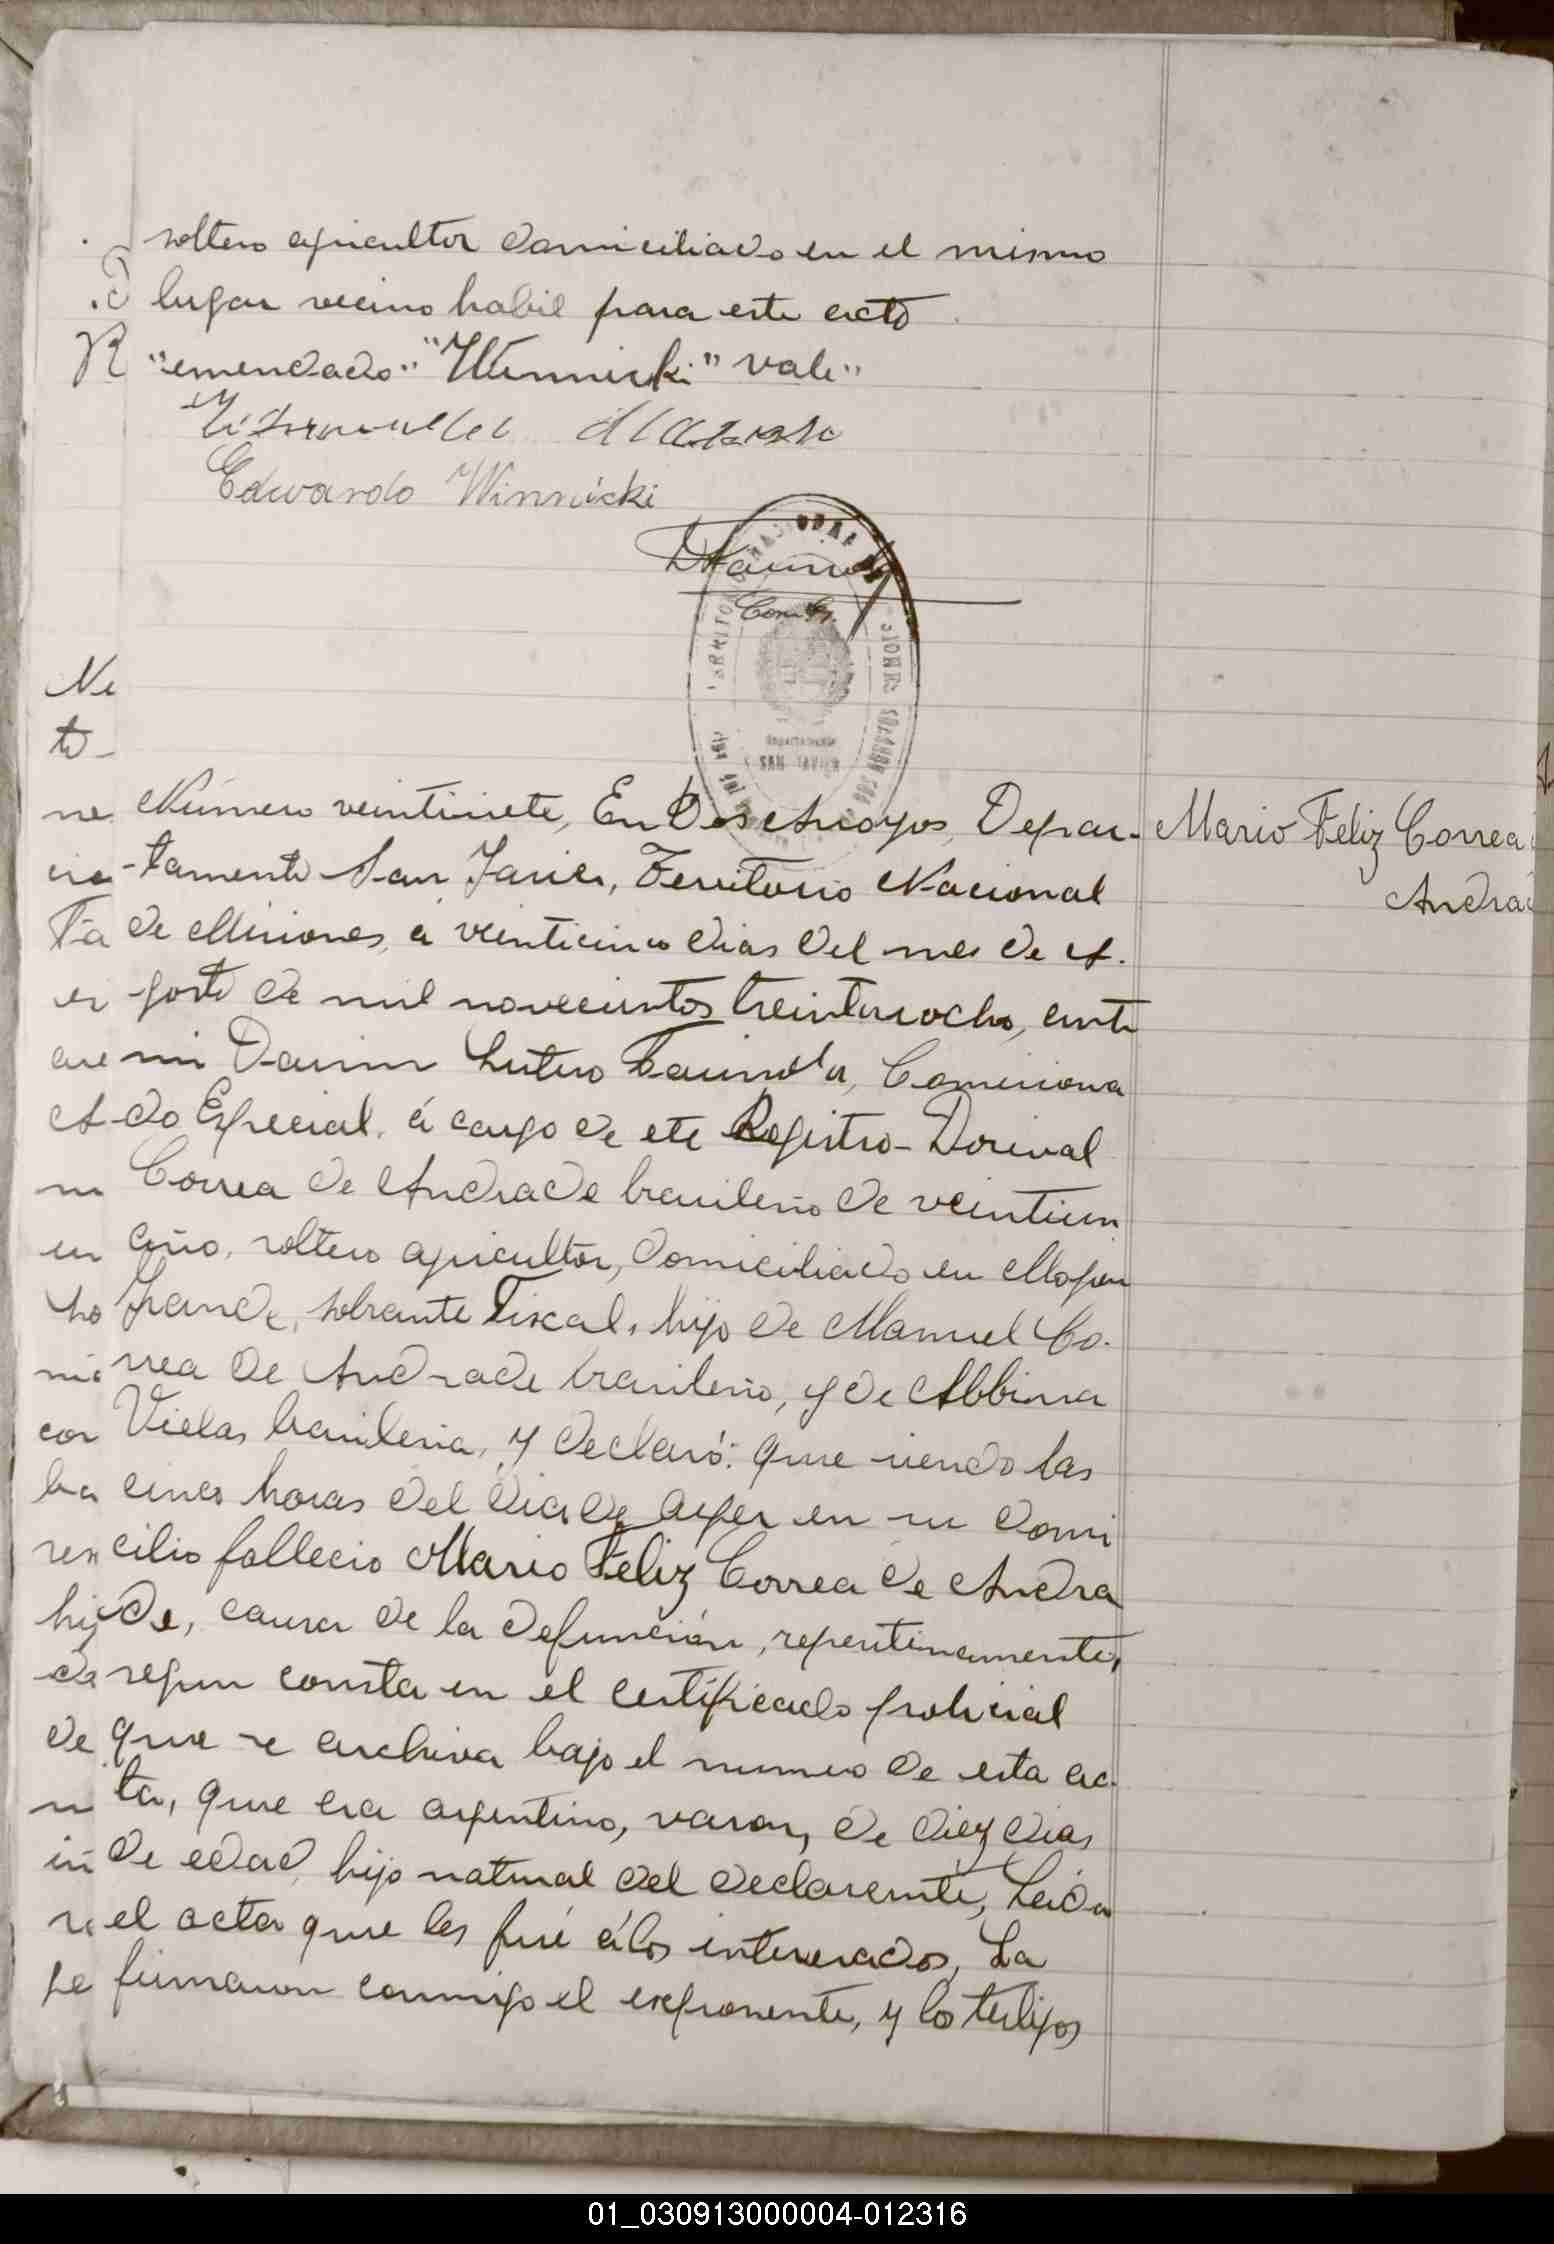 soltero agricultor domiciliado en el mismo
lugar vecino habil para este acto
"emendado" "Winnicki" vale"
Eduardo Winnicki
SAN JAVIER
Número veintisiete, En Dos Arroyos, Depar-
-tamento San Javier, Territorio Nacional
de Misiones, á veinticinco dias del mes de A-
gosto de mil novecientos treintaiocho, ante
mi Darim Lutero Comisiona
do Especial, á cargo de este Registro- Dorival
Correa de Andrade brasileño de veintiun
año, soltero agricultor, domiciliado en Mojon
Grande, sobrante Fiscal, hijo de Manuel Co-
rrea de Andrade brasileño, y de Albina
Vielas brasileña, y declaró: que siendo las
cinco horas del dia de ayer en su domi
cilio fallecio Mario Feliz Correa de Andra
de, causa de la defunción, repentinamente,
segun consta en el certificado policial
que se archiva bajo el numero de esta ac-
ta, que era argentino, varon, de diez dias
de edad, hijo natural del declarente, Leida
el acta que les fué á los interesados, La
firmaron conmigo el exponente, y los testigos
Mario Feliz Correa
Andra
Ne
to-
ne
Ta
en
que
A
en
cor
ba
hij
de
de
01_030913000004-012316